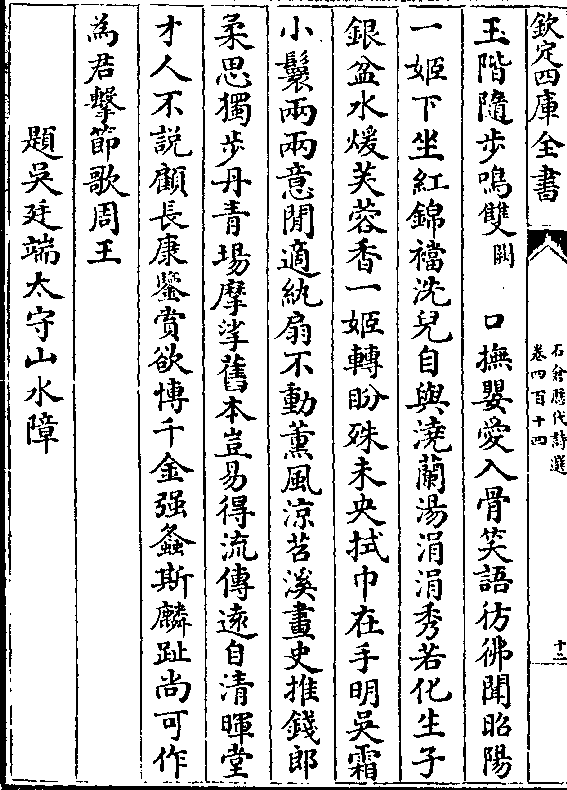 欽定四庫全書
石倉歷代詩選
卷四百十四
十二
玉階隨步鳴雙闕 口撫嬰愛入骨笑語彷彿聞昭陽
一姬下坐紅錦襠洗兒自與澆蘭湯涓涓秀若化生子
銀盆水煖芙蓉香一姬轉盼殊未央拭巾在手明吳霜
小鬟兩兩意閒適紈扇不動薰風涼苕溪畫史推錢郎
柔思獨步丹青場摩挲舊本豈易得流傳遠自清暉堂
才人不說顧長康鑒賞欲博千金强螽斯麟趾尚可作
為君擊節歌周王
題吳廷端太守山水障